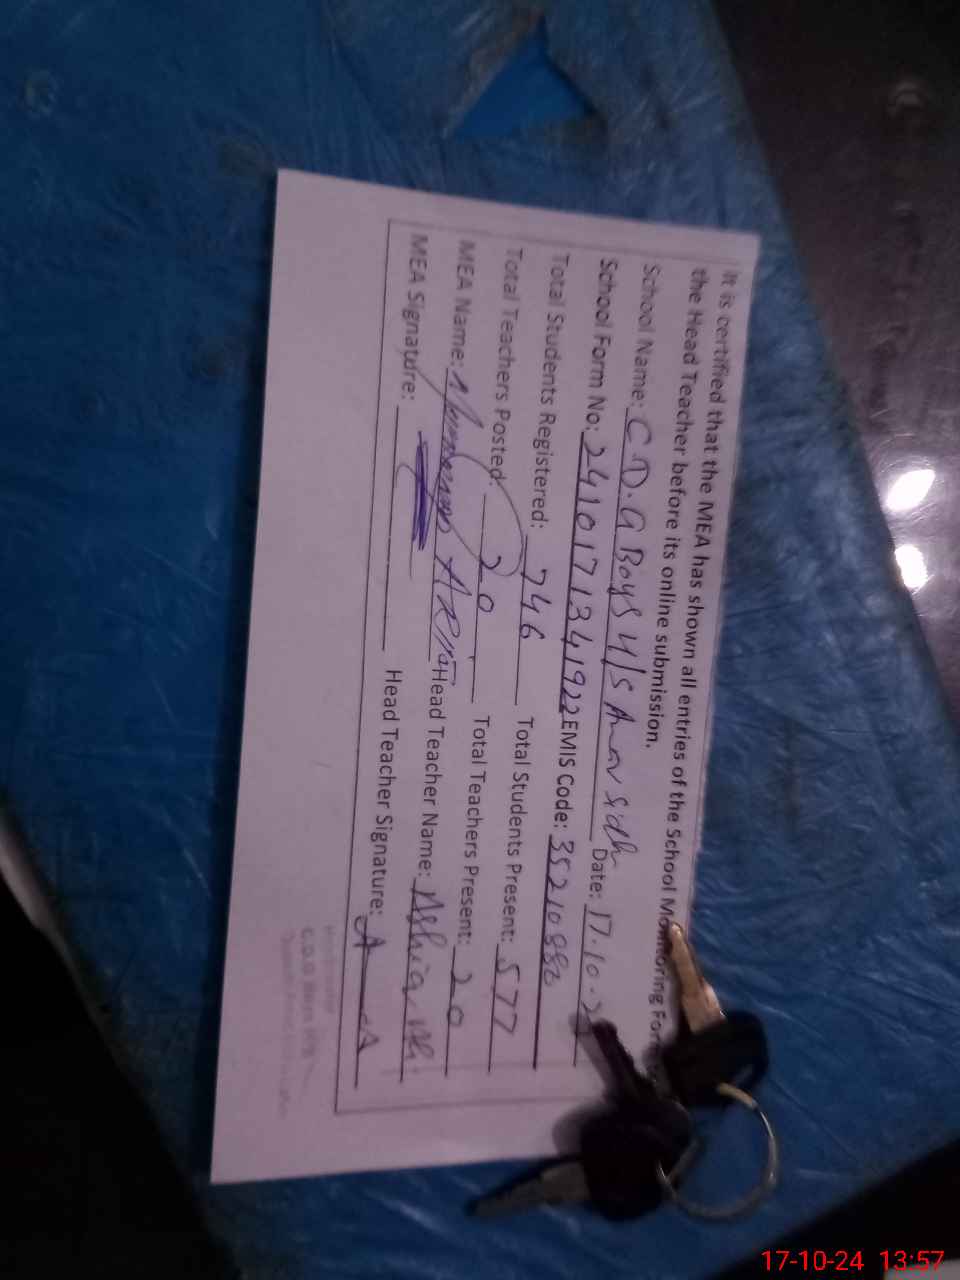 It is certified that the MEA has shown all entries of the School Monitoring Form
the Head Teacher before its online submission.
School Name: C.D.G Boys H/S Amar Sidh Date: 17.10.24
School Form No: 2410171341922 EMIS Code: 35210882
Total Students Registered: 746 Total Students Present: 577
Total Teachers Posted: 20 Total Teachers Present: 20
MEA Name: Head Teacher Name: Ashiq Ali
MEA Signature: Head Teacher Signature:
C.D.G Boys
17-10-24 13:57